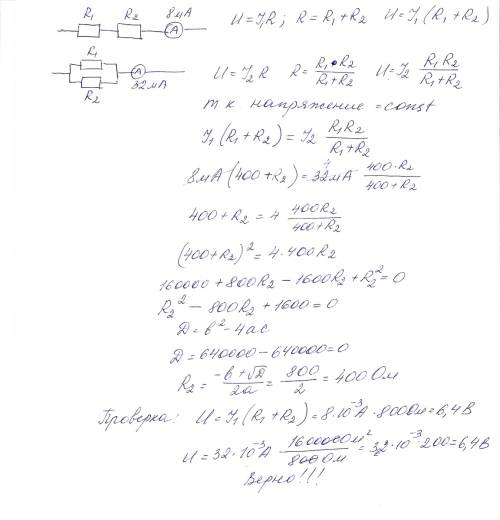 R₁ R₂ 8мА
A
U = J₁R; R = R₁+R₂ U = J₁(R₁+R₂)
R₁
A
R₂ 32мА
U = J₂ R R = R₁•R₂/(R₁+R₂) U = J₂ R₁R₂/(R₁+R₂)
т к напряжение = const
J₁(R₁+R₂) = J₂ R₁R₂/(R₁+R₂)
8мА(400+R₂) = 32мА 400·R₂/(400+R₂)
4
400+R₂ = 4 400R₂/(400+R₂)
(400+R₂)² = 4·400R₂
160000+800R₂ – 1600R₂+R₂² = 0
R₂² – 800R₂ + 1600 = 0
D = b² – 4ac
D = 640000 – 640000 = 0
R₂ = (–b+√D)/2a = 800/2 = 400 Ом
Проверка: U = J₁(R₁+R₂) = 8·10⁻³A·800Ом = 6,4В
U = 32·10⁻³A · 160000Ом²/800Ом = 32·10⁻³·200 = 6,4В
Верно!!!